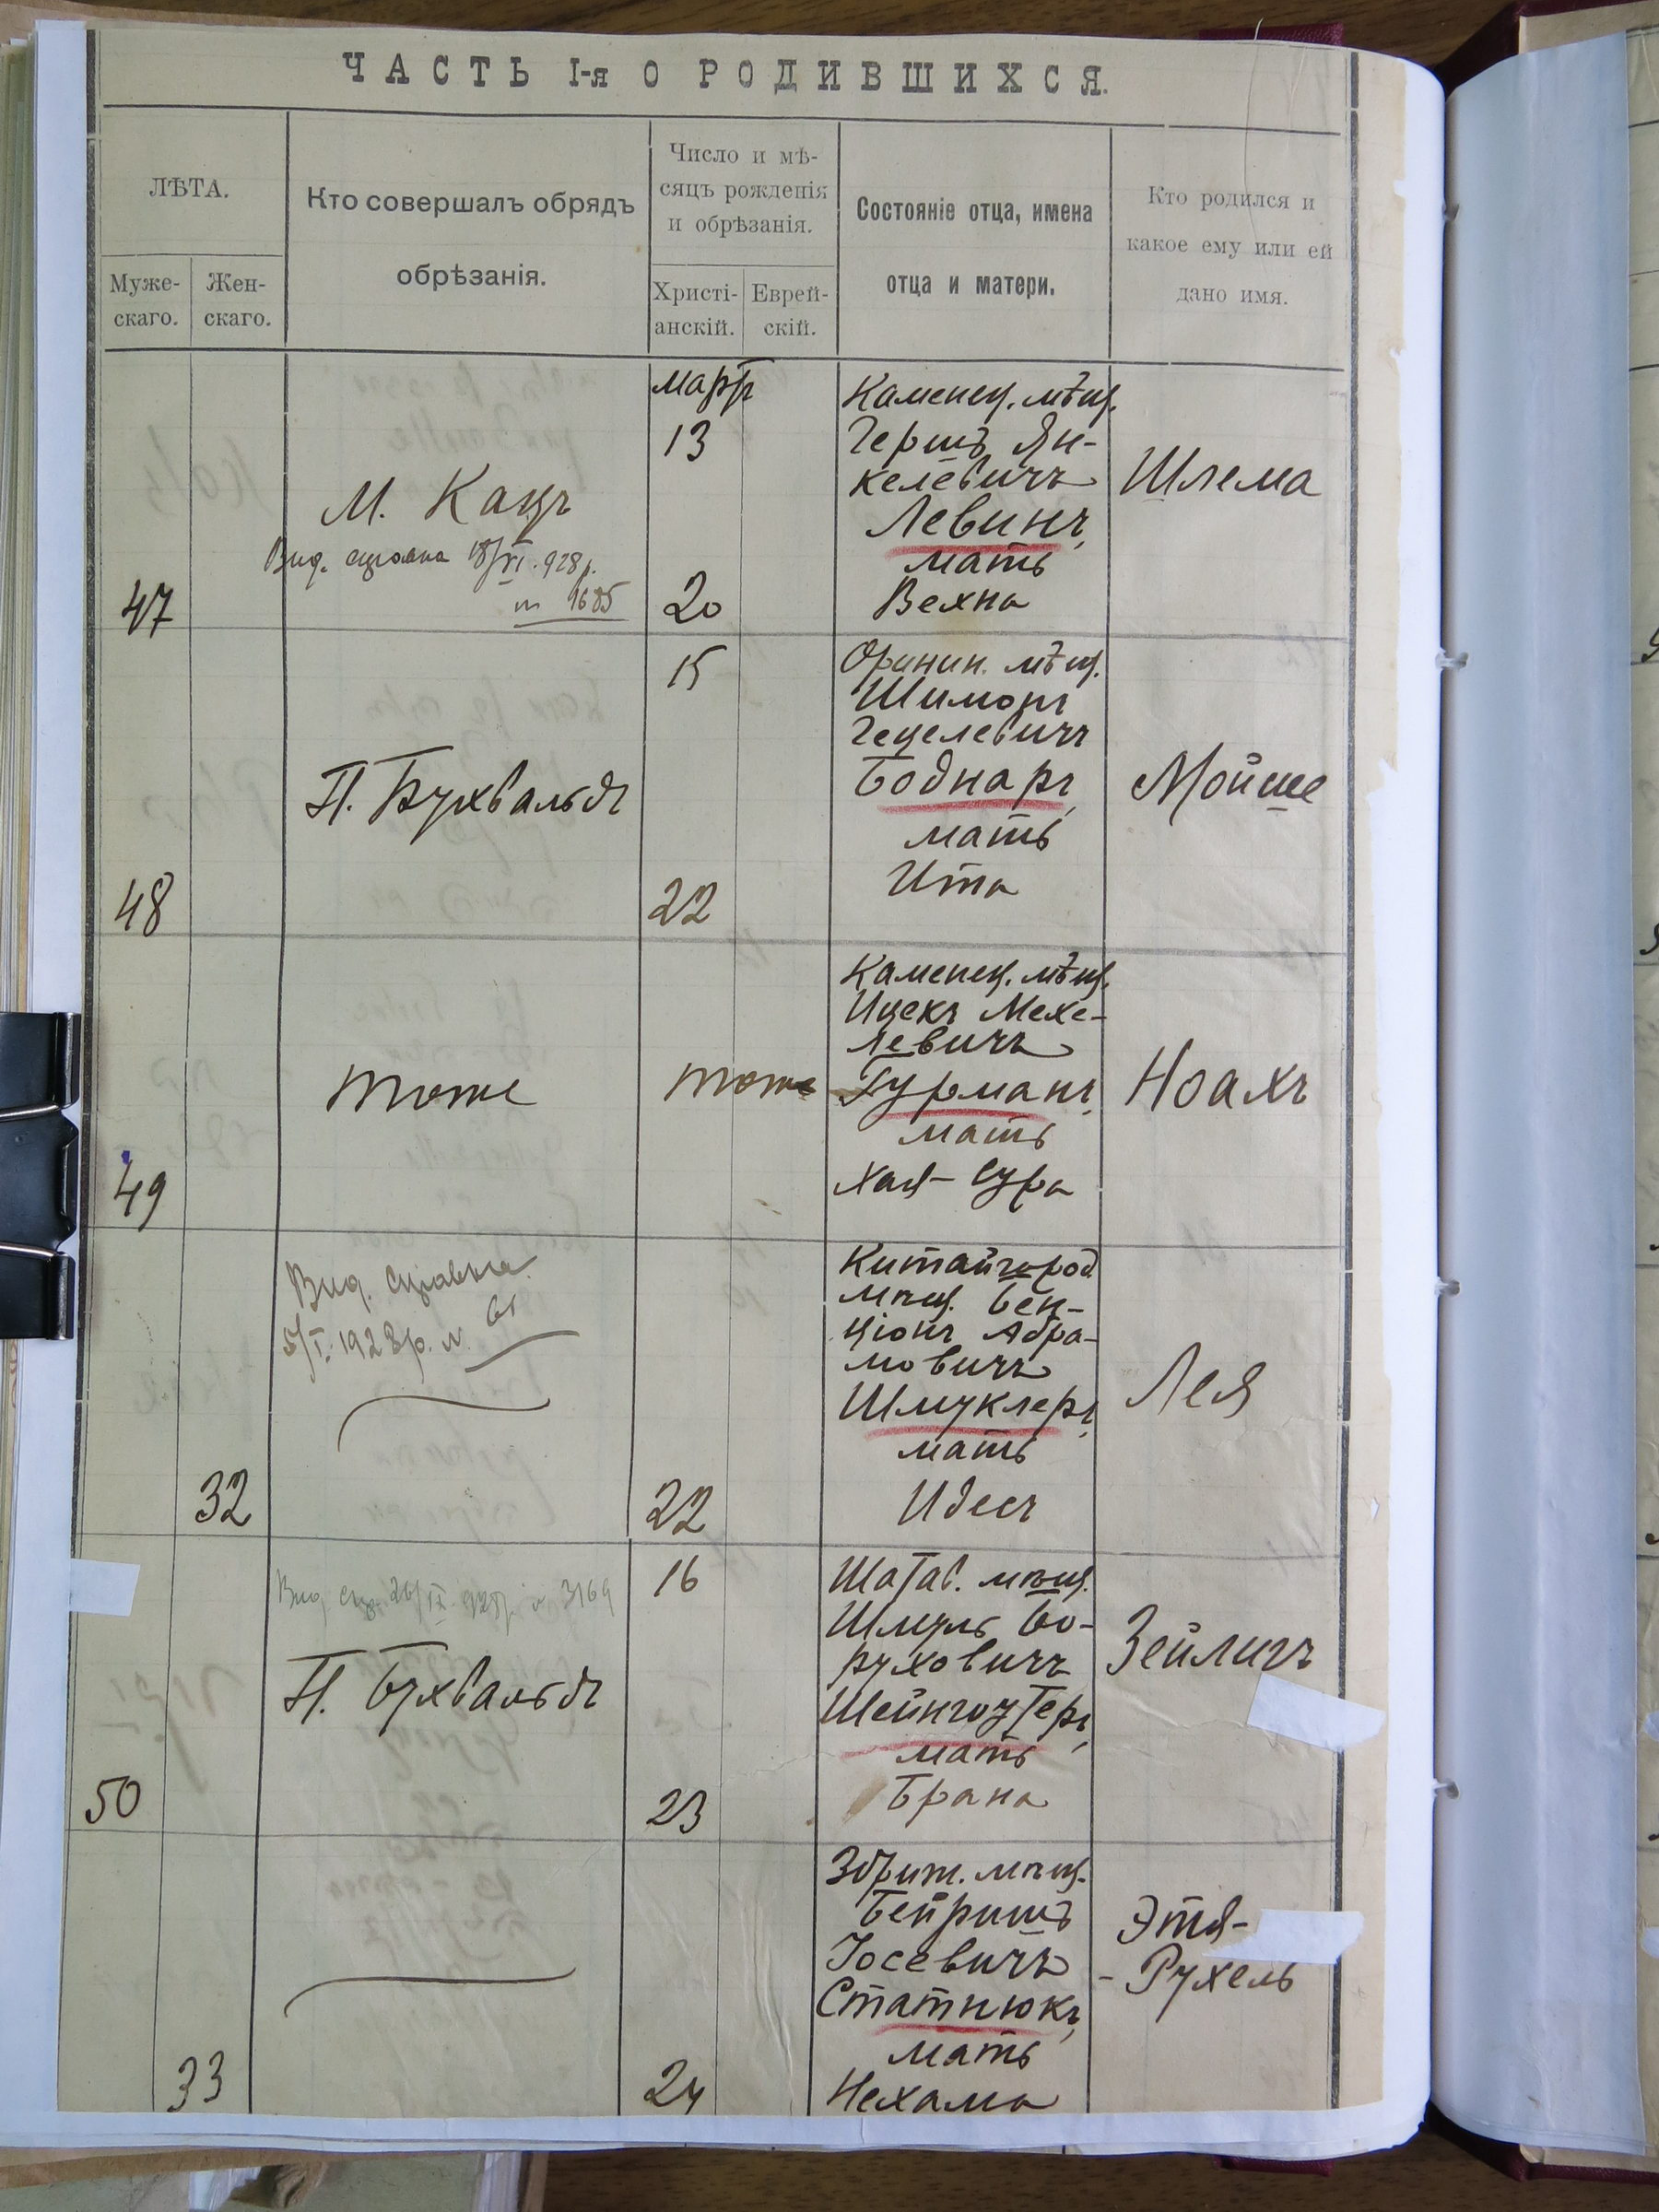 ЧАСТЬ I-я О РОДИВШИХСЯ.
ЛѢТА.
Муже-
скаго.
Жен-
скаго.
Кто совершалъ обрядъ
обрѣзанія.
Число и мѣ-
сяцъ рожденія
и обрѣзанія.
Христі-
анскій.
Еврей-
скій.
Состояніе отца, имена
отца и матери.
Кто родился и
какое ему или ей
дано имя.
47
М. Кацъ
Вид. справка 18/VI.928р.
№ 1685
мартъ
13
20
Каменец. мѣщ.
Гершъ Ян-
келевичъ
Левинъ,
мать
Вехна
Шлема
48
П. Бухвальдъ
15
22
Оринин. мѣщ.
Шимонъ
Гецелевичъ
Боднаръ,
мать
Ита
Мойше
49
тоже
тоже
Каменец. мѣщ.
Ицекъ Мехе-
левичъ
Гурманъ,
мать
Хая-Сура
Ноахъ
32
Вид. справка
5/I.1928р. № 61
22
Китайгород.
мѣщ. Бен-
ціонъ Абра-
мовичъ
Шмуклеръ,
мать
Идесъ
Лея
50
Вид. 928р. № 3169
П. Бухвальдъ
16
23
Шатав. мѣщ.
Шмуль Бо-
руховичъ
Шейнгоутеръ,
мать
Брана
Зейлигъ
33
24
Збриж. мѣщ.
Бейришъ
Іосевичъ
Статнюкъ,
мать
Нехама
Этя-
-Рухель